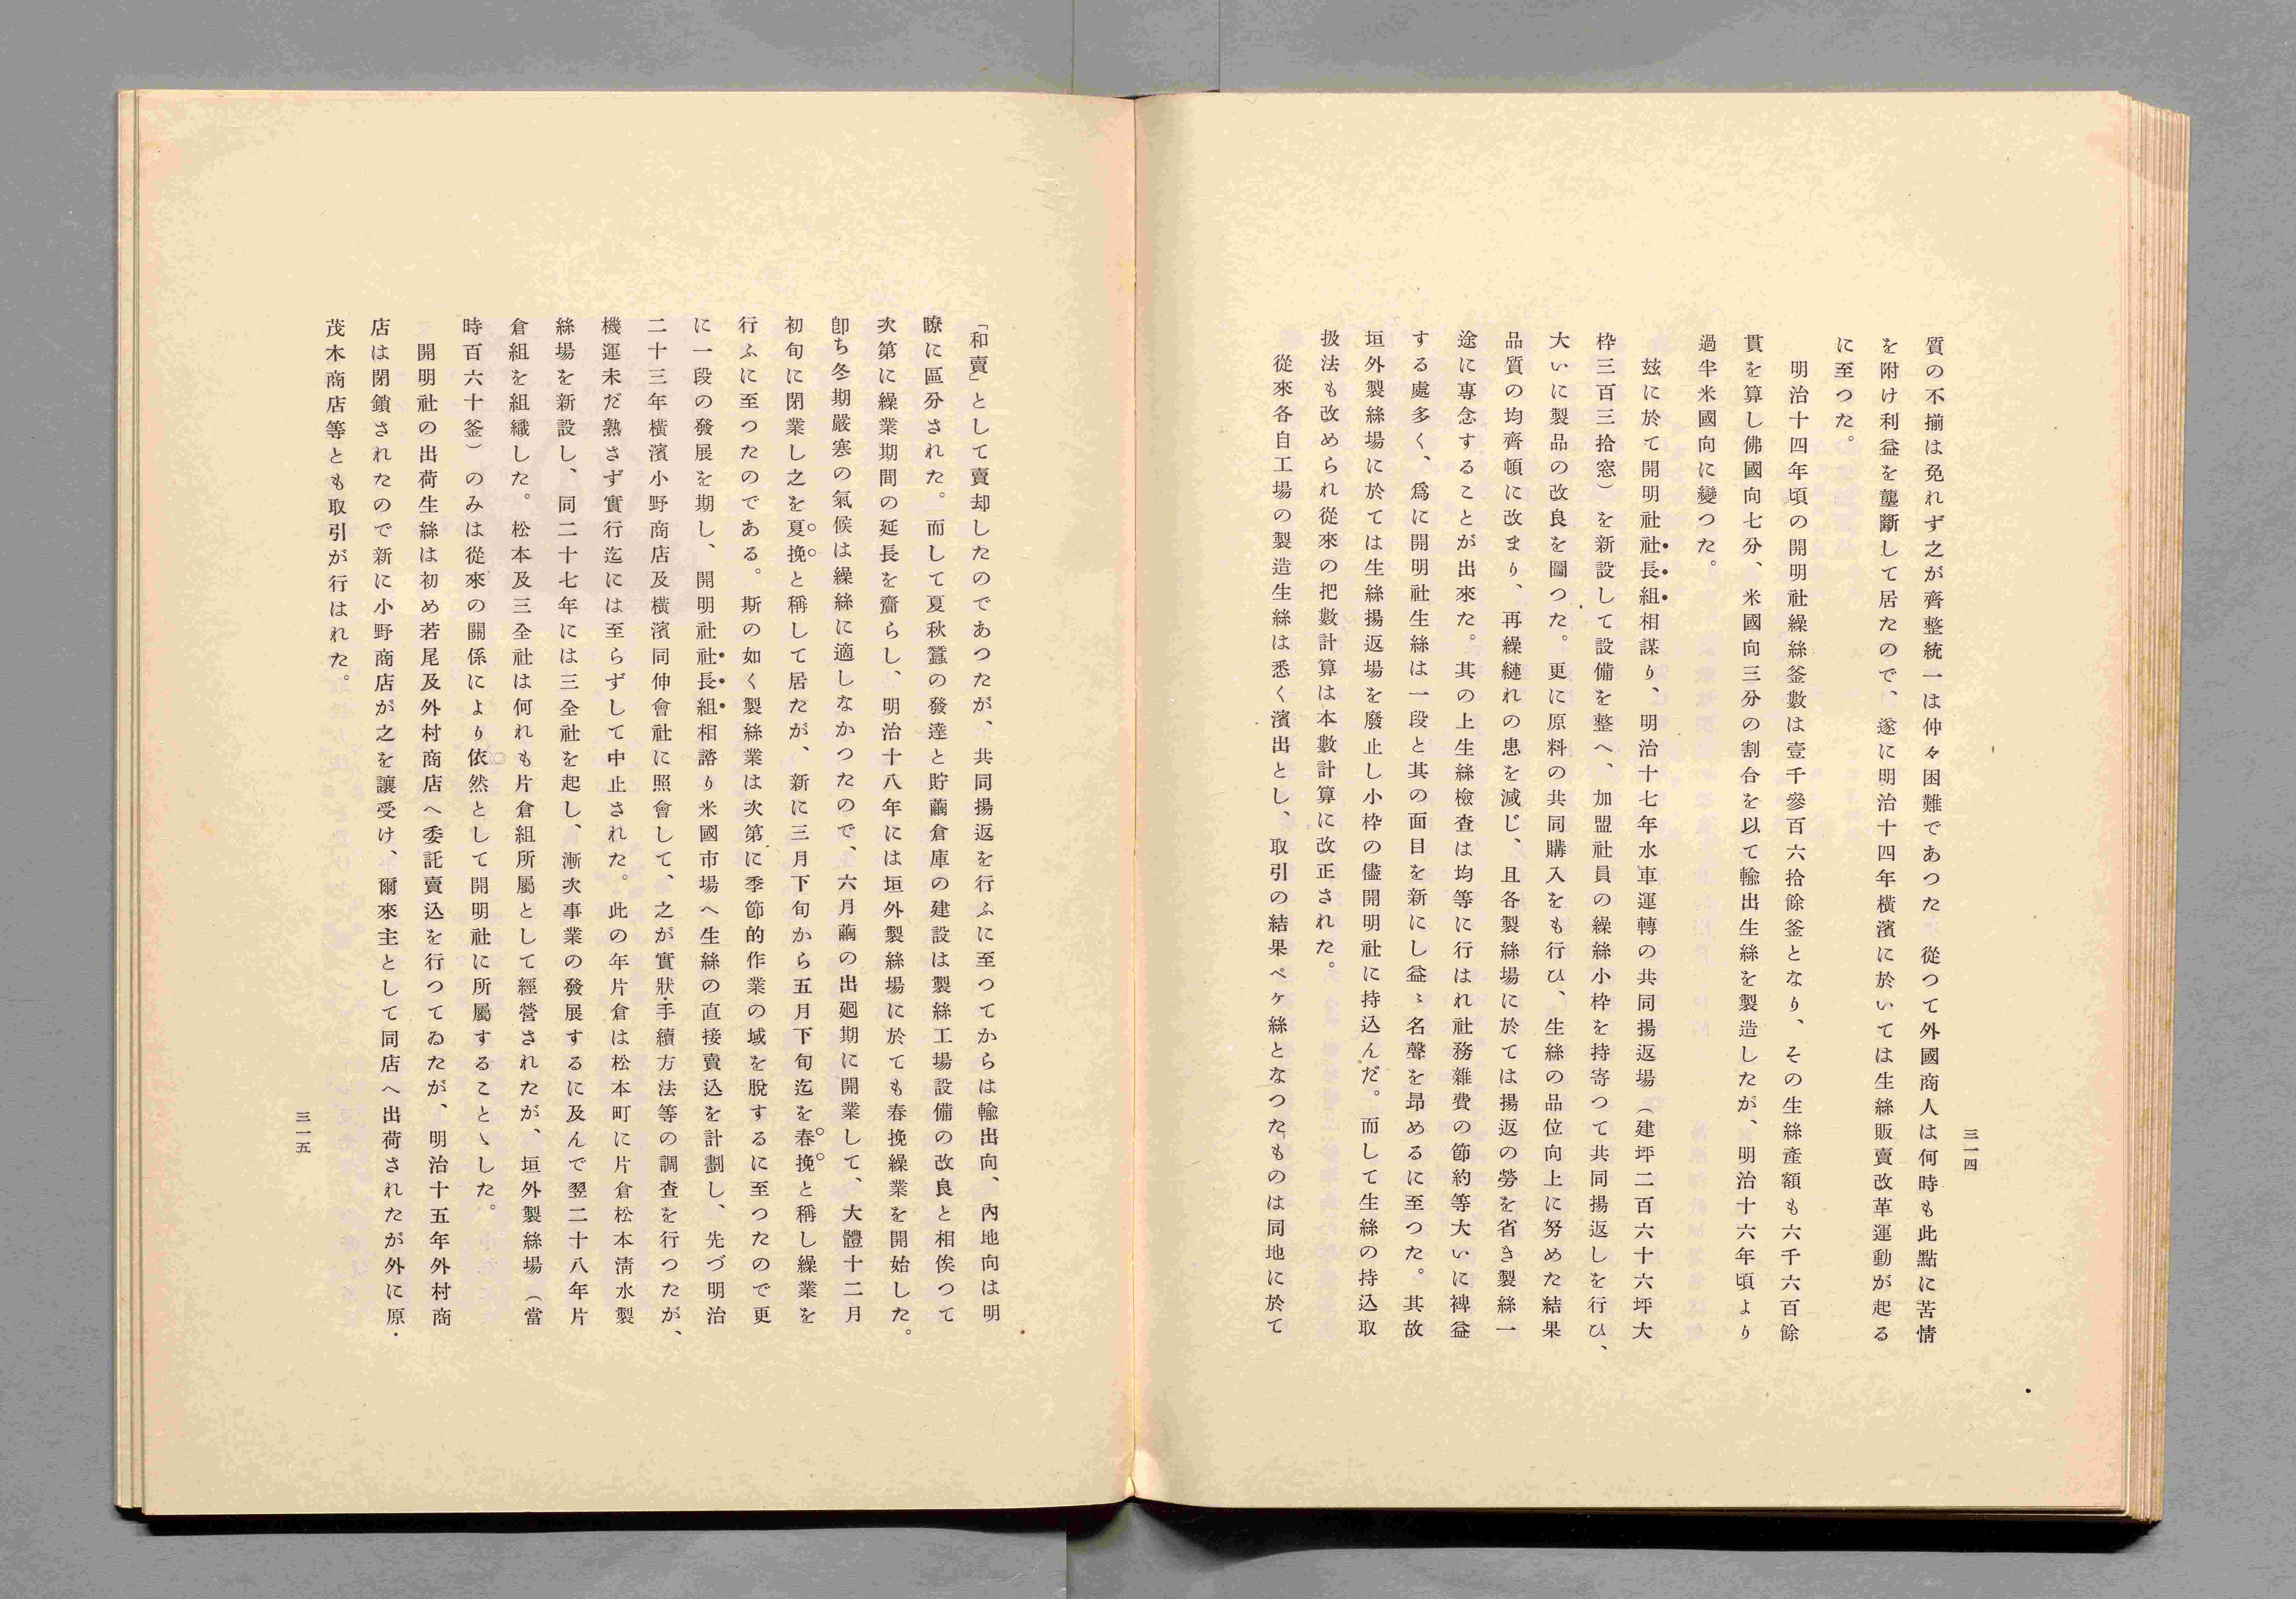 質の不揃は免れず之が齊整統一は仲々困難であつた 從つて外國商人は何時も此點に苦情
を附け利益を壟斷して居たので、遂に明治十四年橫濱に於いては生絲販賣改革運動が起る
に至つた。
明治十四年頃の開明社繰絲釜數は壹千參百六拾餘釜となり、その生絲產額も六千六百餘
貫を算し佛國向七分、米國向三分の割合を以て輸出生絲を製造したが、明治十六年頃より
過半米國向に變つた。
玆に於て開明社社長組相謀り、明治十七年水車運轉の共同揚返場（建坪二百六十六坪大
枠三百三拾窓）を新設して設備を整へ、加盟社員の繰絲小枠を持寄つて共同揚返しを行ひ、
大いに製品の改良を圖つた。更に原料の共同購入をも行ひ、生絲の品位向上に努めた結果
品質の均齊頓に改まり、再繰縺れの患を減じ、且各製絲場に於ては揚返の勞を省き製絲一
途に專念することが出來た。其の上生絲檢査は均等に行はれ社務雜費の節約等大いに裨益
する處多く、爲に開明社生絲は一段と其の面目を新にし益〻名聲を昂めるに至つた。其故
垣外製絲場に於ては生絲揚返場を廢止し小枠の儘開明社に持込んだ。而して生絲の持込取
扱法も改められ從來の把數計算は本數計算に改正された。
從來各自工場の製造生絲は悉く濱出とし、取引の結果ペケ絲となつたものは同地に於て
三一四
「和賣」として賣却したのであつたが、共同揚返を行ふに至つてからは輸出向、內地向は明
瞭に區分された。而して夏秋蠶の發達と貯繭倉庫の建設は製絲工場設備の改良と相俟つて
次第に繰業期間の延長を齎らし、明治十八年には垣外製絲場に於ても春挽繰業を開始した。
卽ち冬期嚴寒の氣候は繰絲に適しなかつたので、六月繭の出廻期に開業して、大體十二月
初旬に閉業し之を夏挽と稱して居たが、新に三月下旬から五月下旬迄を春挽と稱し繰業を
行ふに至つたのである。斯の如く製絲業は次第に季節的作業の域を脫するに至つたので更
に一段の發展を期し、開明社社長組相諮り米國市場へ生絲の直接賣込を計劃し、先づ明治
二十三年橫濱小野商店及橫濱同伸會社に照會して、之が實狀・手續方法等の調査を行つたが、
機運未だ熟さず實行迄には至らずして中止された。此の年片倉は松本町に片倉松本淸水製
絲場を新設し、同二十七年には三全社を起し、漸次事業の發展するに及んで翌二十八年片
倉組を組織した。松本及三全社は何れも片倉組所屬として經營されたが、垣外製絲場（當
時百六十釜）のみは從來の關係により依然として開明社に所屬することゝした。
開明社の出荷生絲は初め若尾及外村商店へ委託賣込を行つてゐたが、明治十五年外村商
店は閉鎖されたので新に小野商店が之を讓受け、爾來主として同店へ出荷されたが外に原・
茂木商店等とも取引が行はれた。
三一五